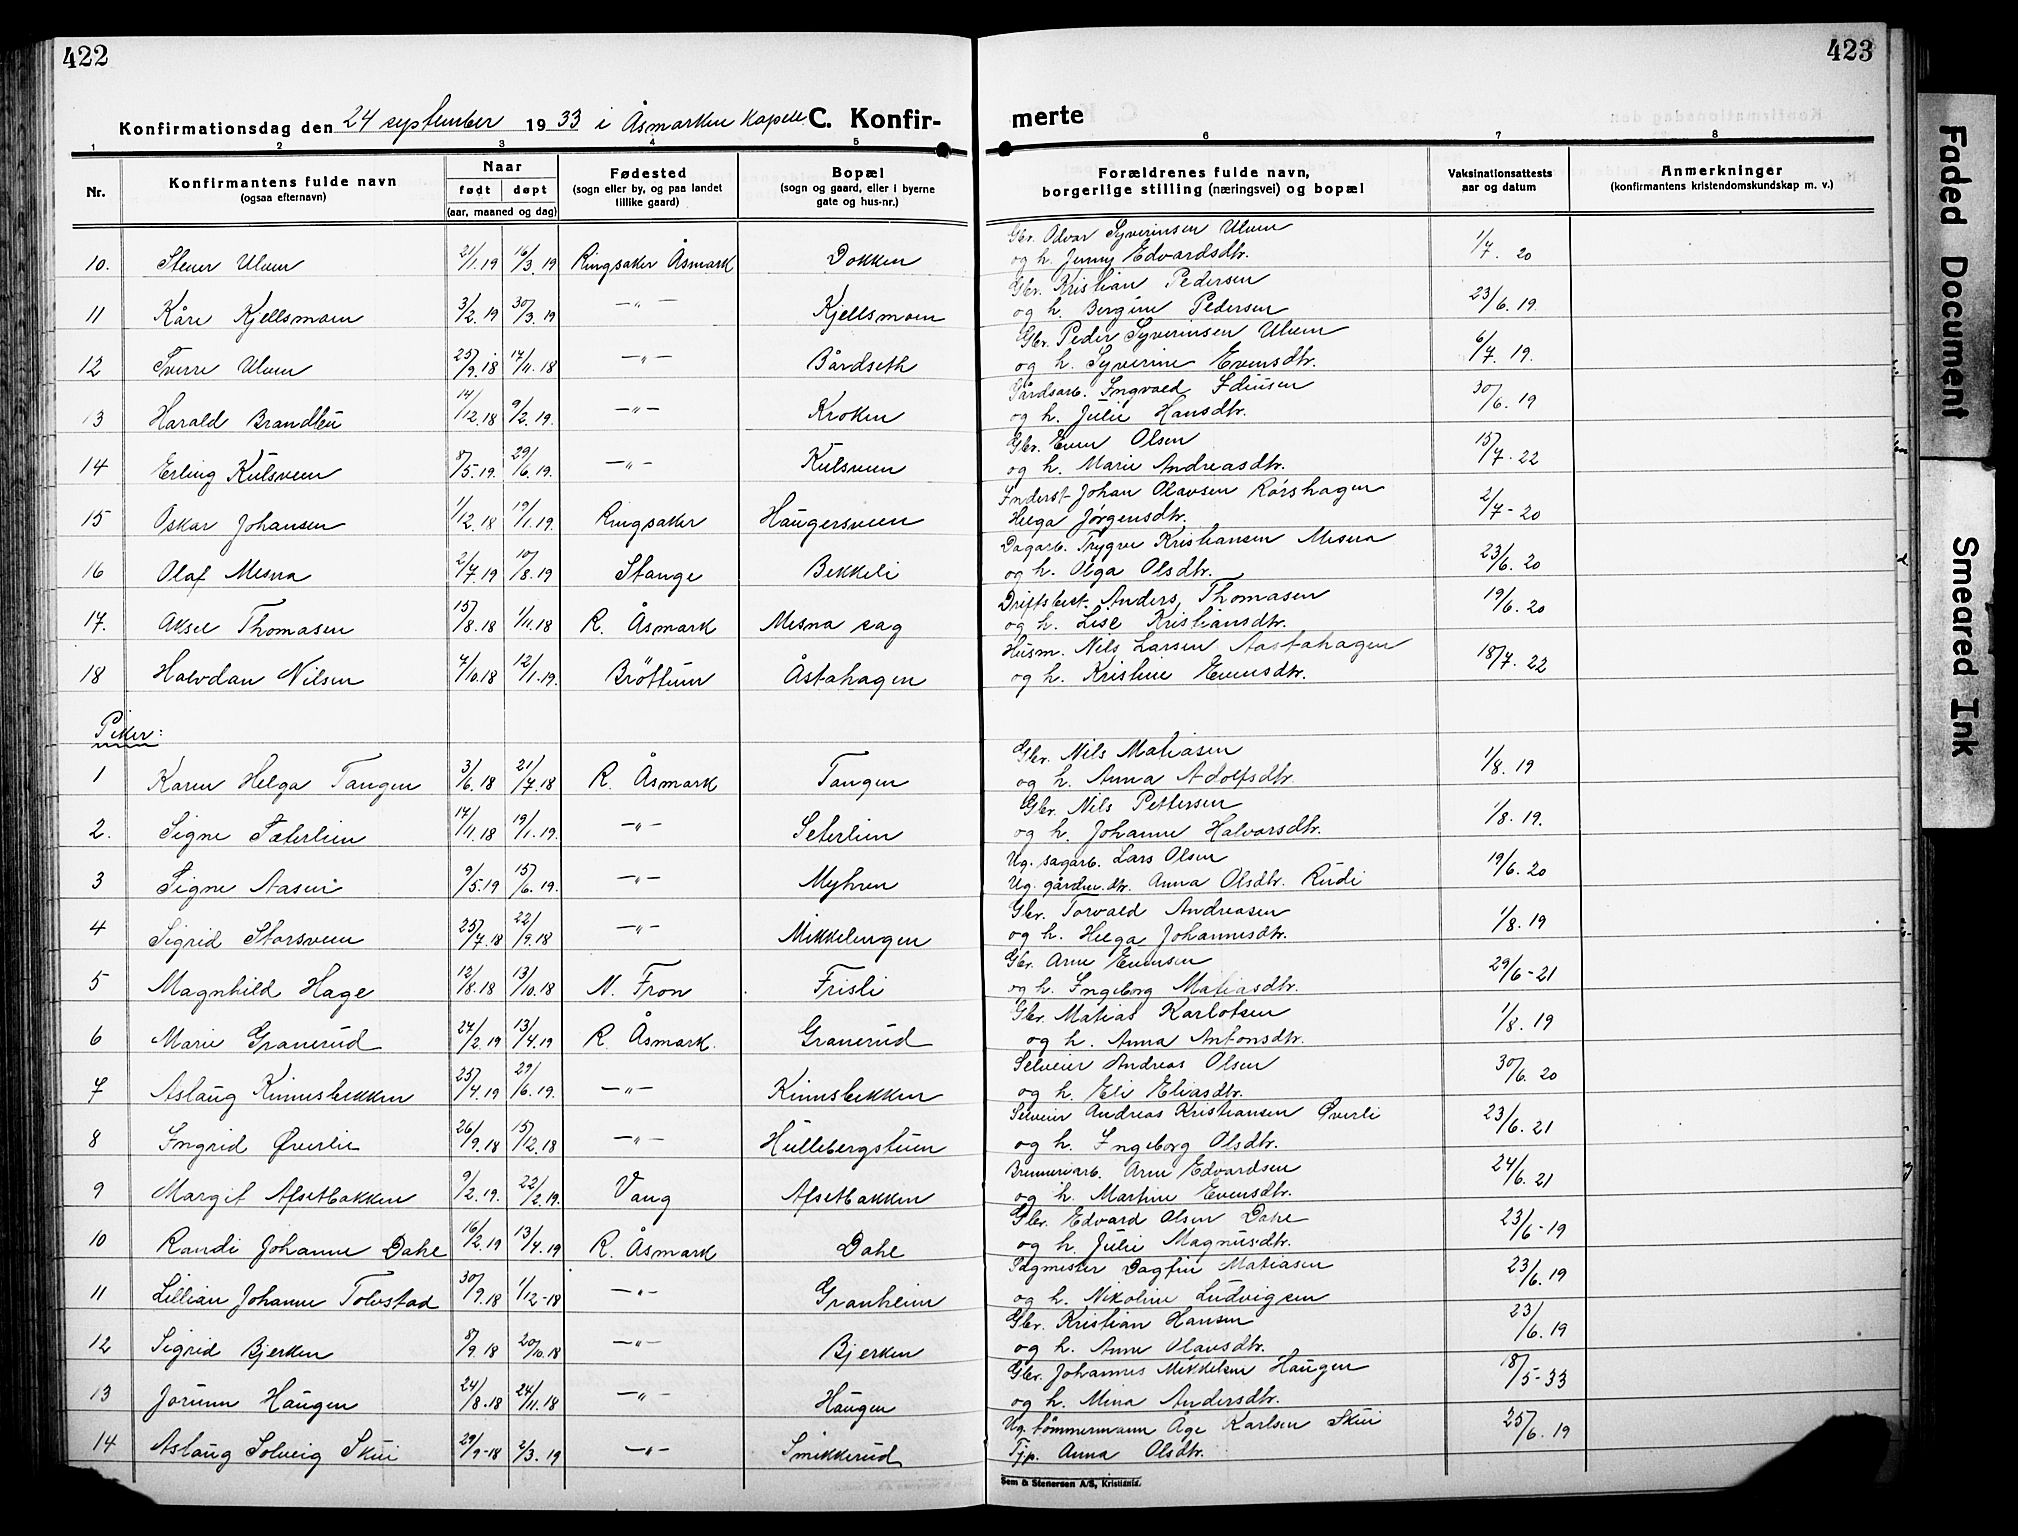 422
423
Konfirmationsdag den 24 september 1933 i Åsmarken Kapell C. Konfir-
merte
1 2 3 4 5
6 7 8
Nr. Konfirmantens fulde navn (ogsaa efternavn) Naar født døpt (aar, maaned og dag) Fødested (sogn eller by, og paa landet tillike gaard) Bopæl (sogn og gaard, eller i byerne gate og hus-nr.) Forældrenes fulde navn, borgerlige stilling (næringsvei) og bopæl Vaksinationsattests aar og datum Anmerkninger (konfirmantens kristendomskundskap m. v.)
10. Stener Ulven 21/1.19 16/3.19 Ringsaker Åsmark Dokken Gbr. Odvar Syverinsen Ulven og h. Jenny Edvardsdtr. 1/7. 20
11 Kåre Kjellsmoen 3/2.19 30/3.19 —"— Kjellsmoen Gbr. Kristian Pedersen og h. Bergine Pedersen 23/6.19
12 Sverre Ulven 25/9.18 17/11.18 —"— Bårdseth Gbr. Peder Syverinsen Ulven og h. Syverine Evensdtr. 6/7.19.
13 Harald Brandlien 14/12.18 9/2.19. —"— Kroken Gårdsarb. Ingvald Edinsen og h. Julie Hansdtr. 30/6.19
14 Erling Kulsveen 8/5.19. 29/6.19. —"— Kulsveen Gbr. Even Olsen og h. Marie Andreasdtr. 15/7.22
15 Oskar Johansen 1/12.18 19/1.19. Ringsaker Haugersveen Inderst Johan Olavsen Rørshagen Helga Jørgensdtr. 2/7-20
16 Olaf Mesna 2/7.19 10/8.19 Stange Bekkeli Dagarb. Trygve Kristiansen Mesna og h. Olga Olsdtr. 23/6.20
17. Aksel Thomasen 15/8.18 1/11.18 R. Åsmark Mesna sag Driftsbest. Anders Thomasen og h. Lise Kristiansdtr. 19/6.20
18 Halvdan Nilsen 7/10.18 12/1.19. Brøttum Åstahagen Husm. Nils Larsen Aastahagen og h. Kristine Evensdtr. 18/7.22
Piker:
1 Karen Helga Tangen 3/6.18 21/7.18 R. Åsmark Tangen Gbr. Nils Matiasen og h. Anna Adolfsdtr. 1/8.19
2. Signe Sæterlien 17/11.18 19/1.19. —"— Seterlien Gbr. Nils Pettersen og h. Johanne Halvorsdtr. 1/8.19.
3 Signe Aasen 9/5.19 15/6.19. —"— Myhren Ug. sagarb. Lars Olsen Ug. gårdm.dtr. Anna Olsdtr. Rudi 19/6.20
4 Sigrid Storsveen 25/7.18 22/9.18 —"— Mikkelengen Gbr. Torvald Andreasen og h. Helga Johannesdtr. 1/8.19
5 Magnhild Hage 12/8.18 13/10.18 N. Fron Frisli Gbr. Arne Evensen og h. Ingeborg Matiasdtr. 29/6-21
6 Marie Granerud 27/2.19 13/4.19 R. Åsmark. Granerud Gbr. Matias Karlotsen og h. Anna Antonsdtr. 1/8.19
7 Aslaug Kinnsbekken 25/4.19 29/6.19. —"— Kinnsbekken Selveier Andreas Olsen og h. Eli Eliasdtr. 30/6.20
8 Ingrid Øverlie 26/9.18 15/12.18 —"— Hullebergstuen Selveier Andreas Kristiansen Øverli og h. Ingeborg Olsdtr. 23/6.21
9 Margit Afsetbakken 9/2.19. 22/2.19. Vang Afsetbakken Brenneriarb. Arne Edvardsen og h. Martine Evensdtr. 24/6.21
10 Randi Johanne Dahe 16/2.19 13/4.19 R. Åsmark Dahe Gbr. Edvard Olsen Dahe og h. Julie Magnusdtr. 23/6-19
11 Lillian Johanne Tolvstad 30/9.18 1/12-18 —"— Granheim Sagmester Dagfin Matiasen og h. Nikoline Ludvigsen 23/6.19
12 Sigrid Bjerken 8/9.18 20/10.18 —"— Bjerken Gbr. Kristian Hansen og h. Anne Olavsdtr. 23/6.19
13 Jorunn Haugen 24/8.18 24/11.18 —"— Haugen Gbr. Johannes Mikkelsen Haugen og h. Mina Andersdtr. 18/5-33
14 Aslaug Solveig Skui 29/9-18 2/3.19 —"— Smikkerud Ug. tømmermann Åge Karlsen Skui Tjp. Anna Olsdtr. 25/6.19
Sem & Stenersen A/S, Kristiania.
Faded Document
Smeared Ink